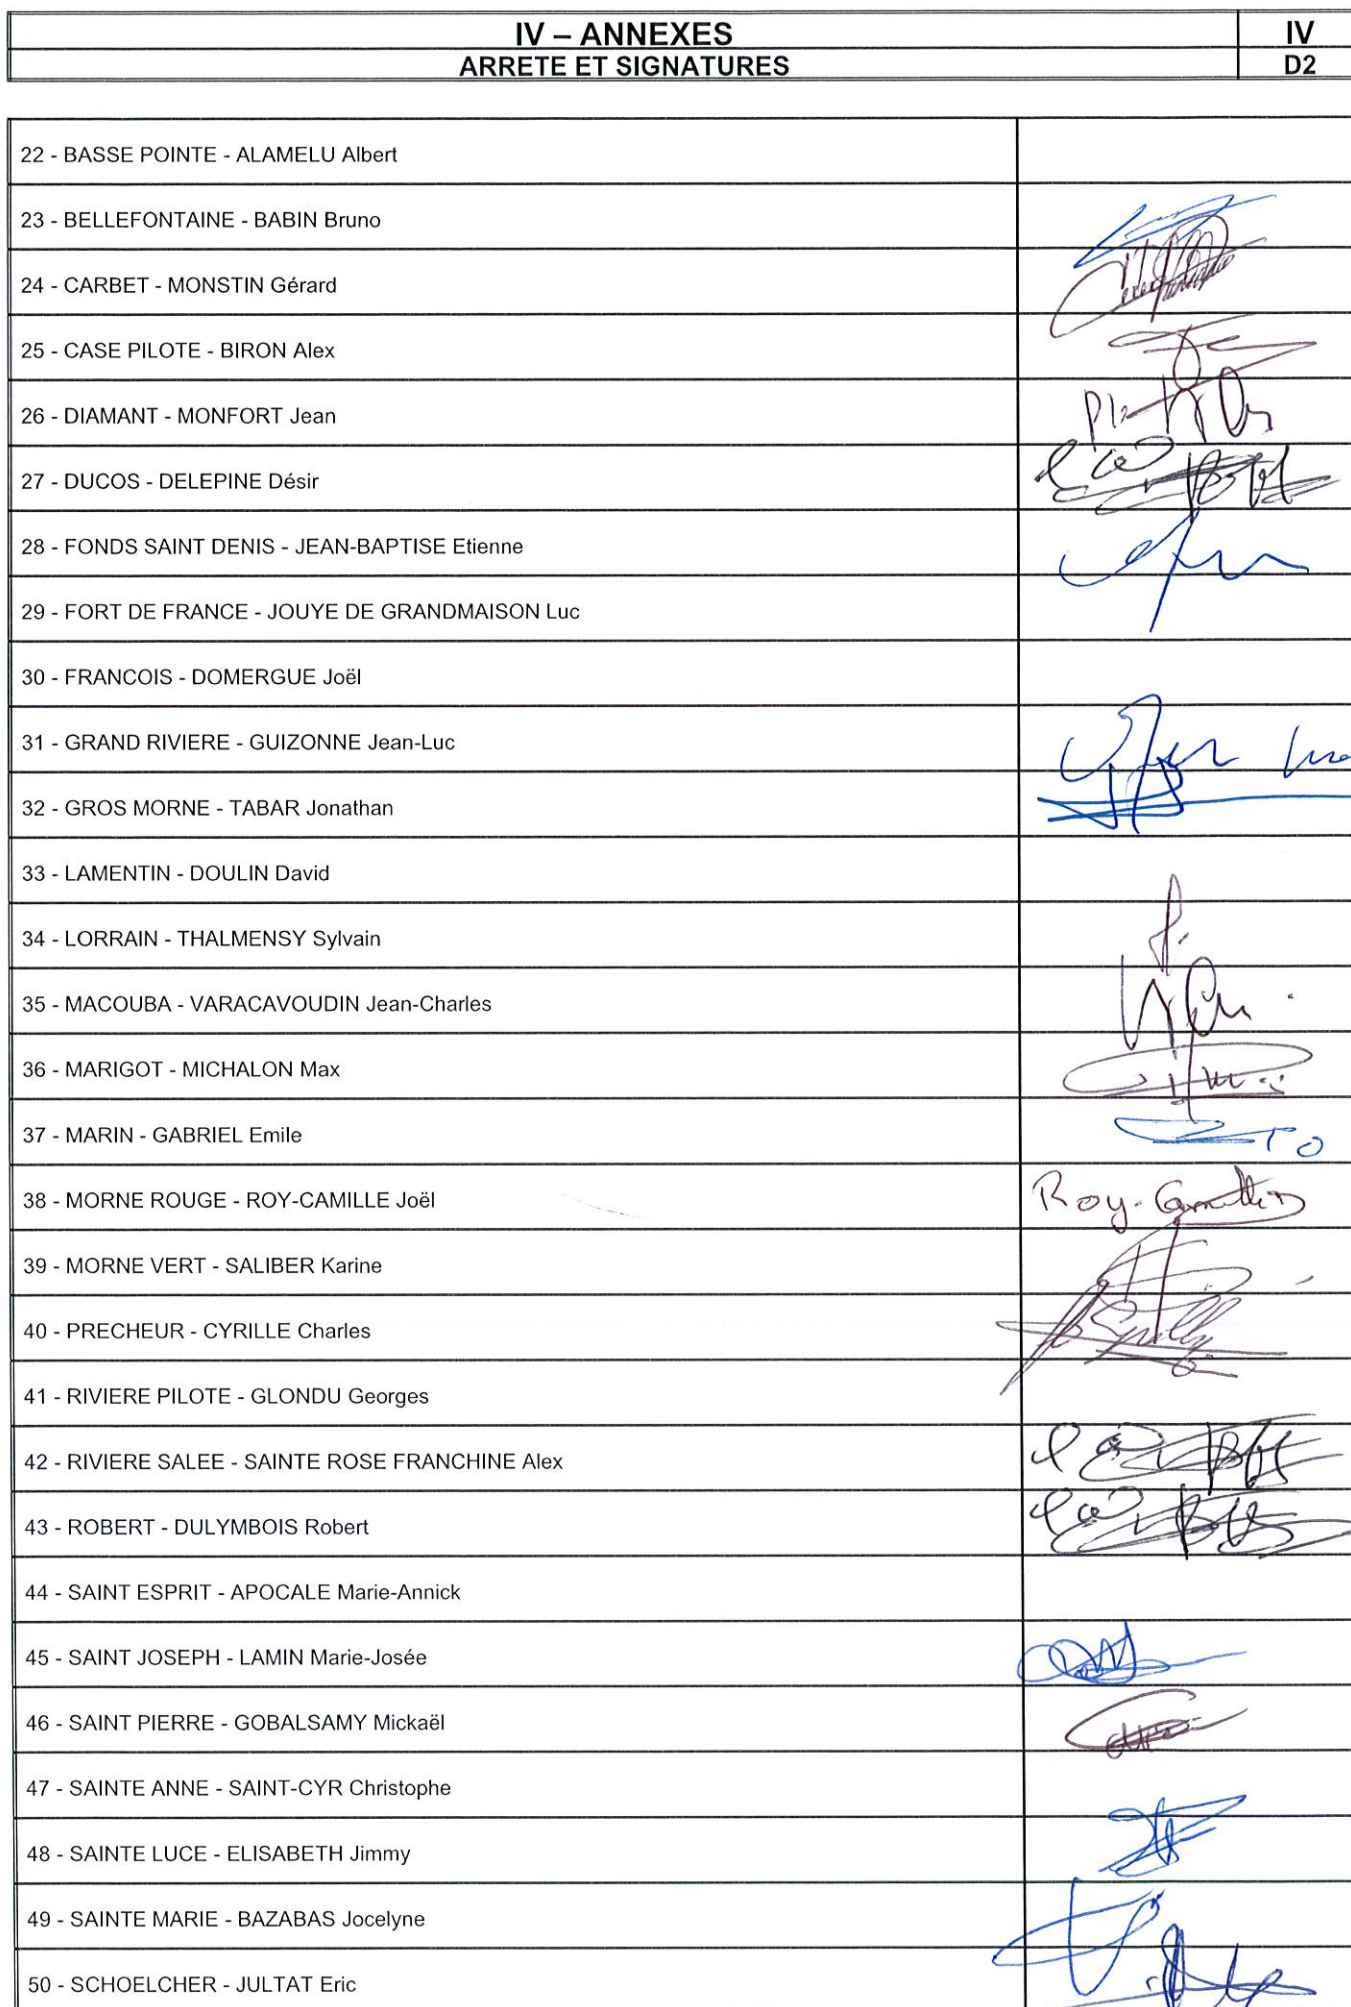 IV – ANNEXES
IV
ARRETE ET SIGNATURES
D2
22 - BASSE POINTE - ALAMELU Albert
23 - BELLEFONTAINE - BABIN Bruno
24 - CARBET - MONSTIN Gérard
25 - CASE PILOTE - BIRON Alex
26 - DIAMANT - MONFORT Jean
27 - DUCOS - DELEPINE Désir
28 - FONDS SAINT DENIS - JEAN-BAPTISE Etienne
29 - FORT DE FRANCE - JOUYE DE GRANDMAISON Luc
30 - FRANCOIS - DOMERGUE Joël
31 - GRAND RIVIERE - GUIZONNE Jean-Luc
32 - GROS MORNE - TABAR Jonathan
33 - LAMENTIN - DOULIN David
34 - LORRAIN - THALMENSY Sylvain
35 - MACOUBA - VARACAVOUDIN Jean-Charles
36 - MARIGOT - MICHALON Max
37 - MARIN - GABRIEL Emile
38 - MORNE ROUGE - ROY-CAMILLE Joël
39 - MORNE VERT - SALIBER Karine
40 - PRECHEUR - CYRILLE Charles
41 - RIVIERE PILOTE - GLONDU Georges
42 - RIVIERE SALEE - SAINTE ROSE FRANCHINE Alex
43 - ROBERT - DULYMBOIS Robert
44 - SAINT ESPRIT - APOCALE Marie-Annick
45 - SAINT JOSEPH - LAMIN Marie-Josée
46 - SAINT PIERRE - GOBALSAMY Mickaël
47 - SAINTE ANNE - SAINT-CYR Christophe
48 - SAINTE LUCE - ELISABETH Jimmy
49 - SAINTE MARIE - BAZABAS Jocelyne
50 - SCHOELCHER - JULTAT Eric